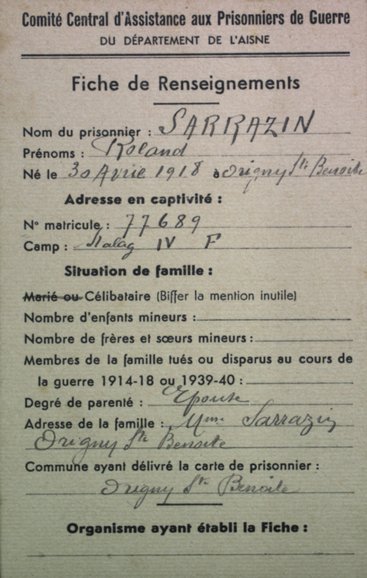 Comité Central d'Assistance aux Prisonniers de Guerre
DU DÉPARTEMENT DE L'AISNE
Fiche de Renseignements
Nom du prisonnier : SARRAZIN
Prénoms : Roland
Né le 30 Avril 1918 à Origny Ste Benoite
Adresse en captivité :
No matricule : 77689
Camp : Stalag IV F
Situation de famille :
Marié ou Célibataire (Biffer la mention inutile)
Nombre d'enfants mineurs :
Nombre de frères et sœurs mineurs :
Membres de la famille tués ou disparus au cours de
la guerre 1914-18 ou 1939-40 :
Degré de parenté : Epouse
Adresse de la famille : Mme Sarrazin
Origny Ste Benoite
Commune ayant délivré la carte de prisonnier :
Origny Ste Benoite
Organisme ayant établi la Fiche :